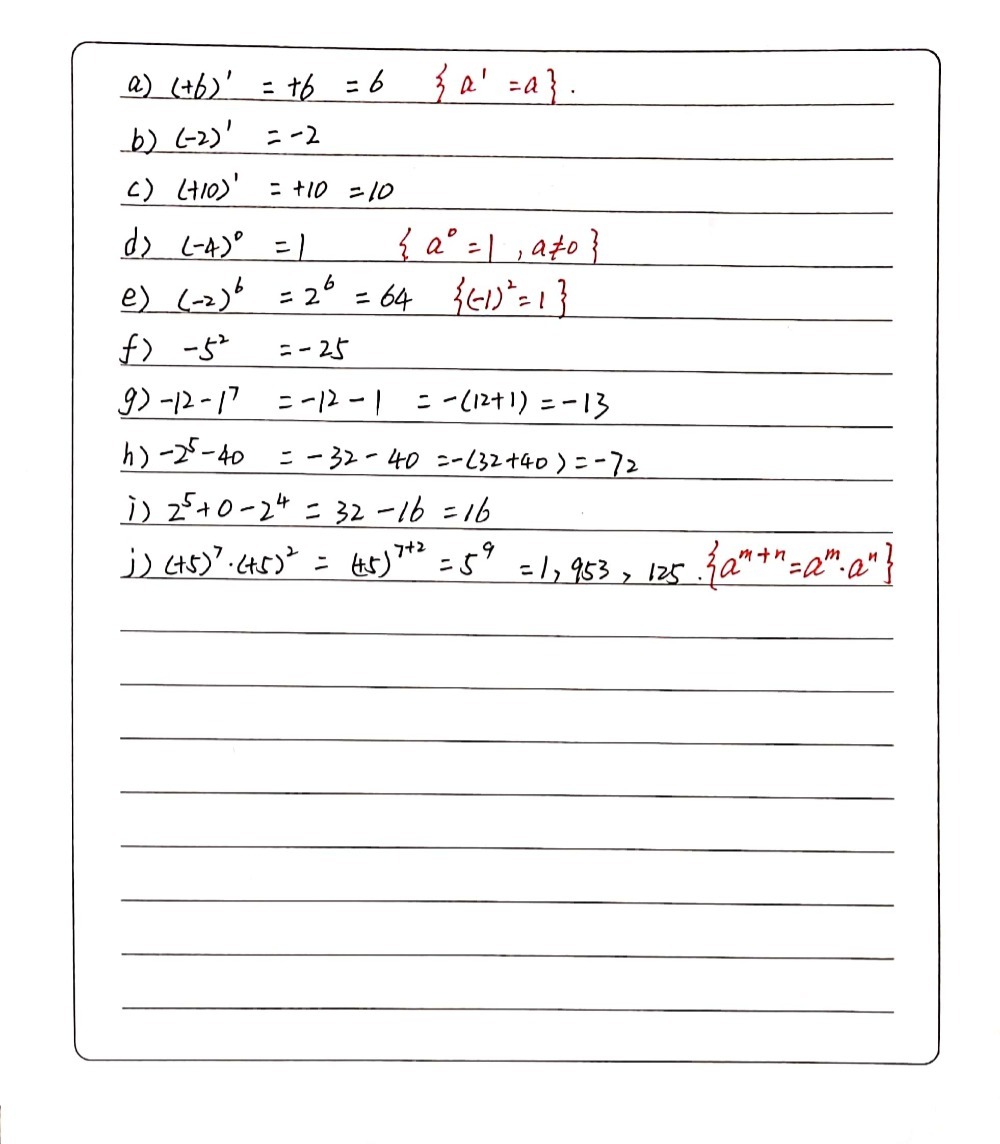 a) (+6)¹ = +6 = 6 { a¹ = a } .
b) (-2)¹ = -2
c) (+10)¹ = +10 = 10
d) (-4)⁰ = 1 { a⁰ = 1 , a≠0 }
e) (-2)⁶ = 2⁶ = 64 {(-1)² = 1 }
f) -5² = -25
g) -12 - 1⁷ = -12 - 1 = -(12+1) = -13
h) -2⁵ - 40 = -32 - 40 = -(32+40) = -72
i) 2⁵ + 0 - 2⁴ = 32 - 16 = 16
j) (+5)⁷ · (+5)² = (+5)⁷⁺² = 5⁹ = 1, 953, 125 . {aᵐ⁺ⁿ = aᵐ · aⁿ}